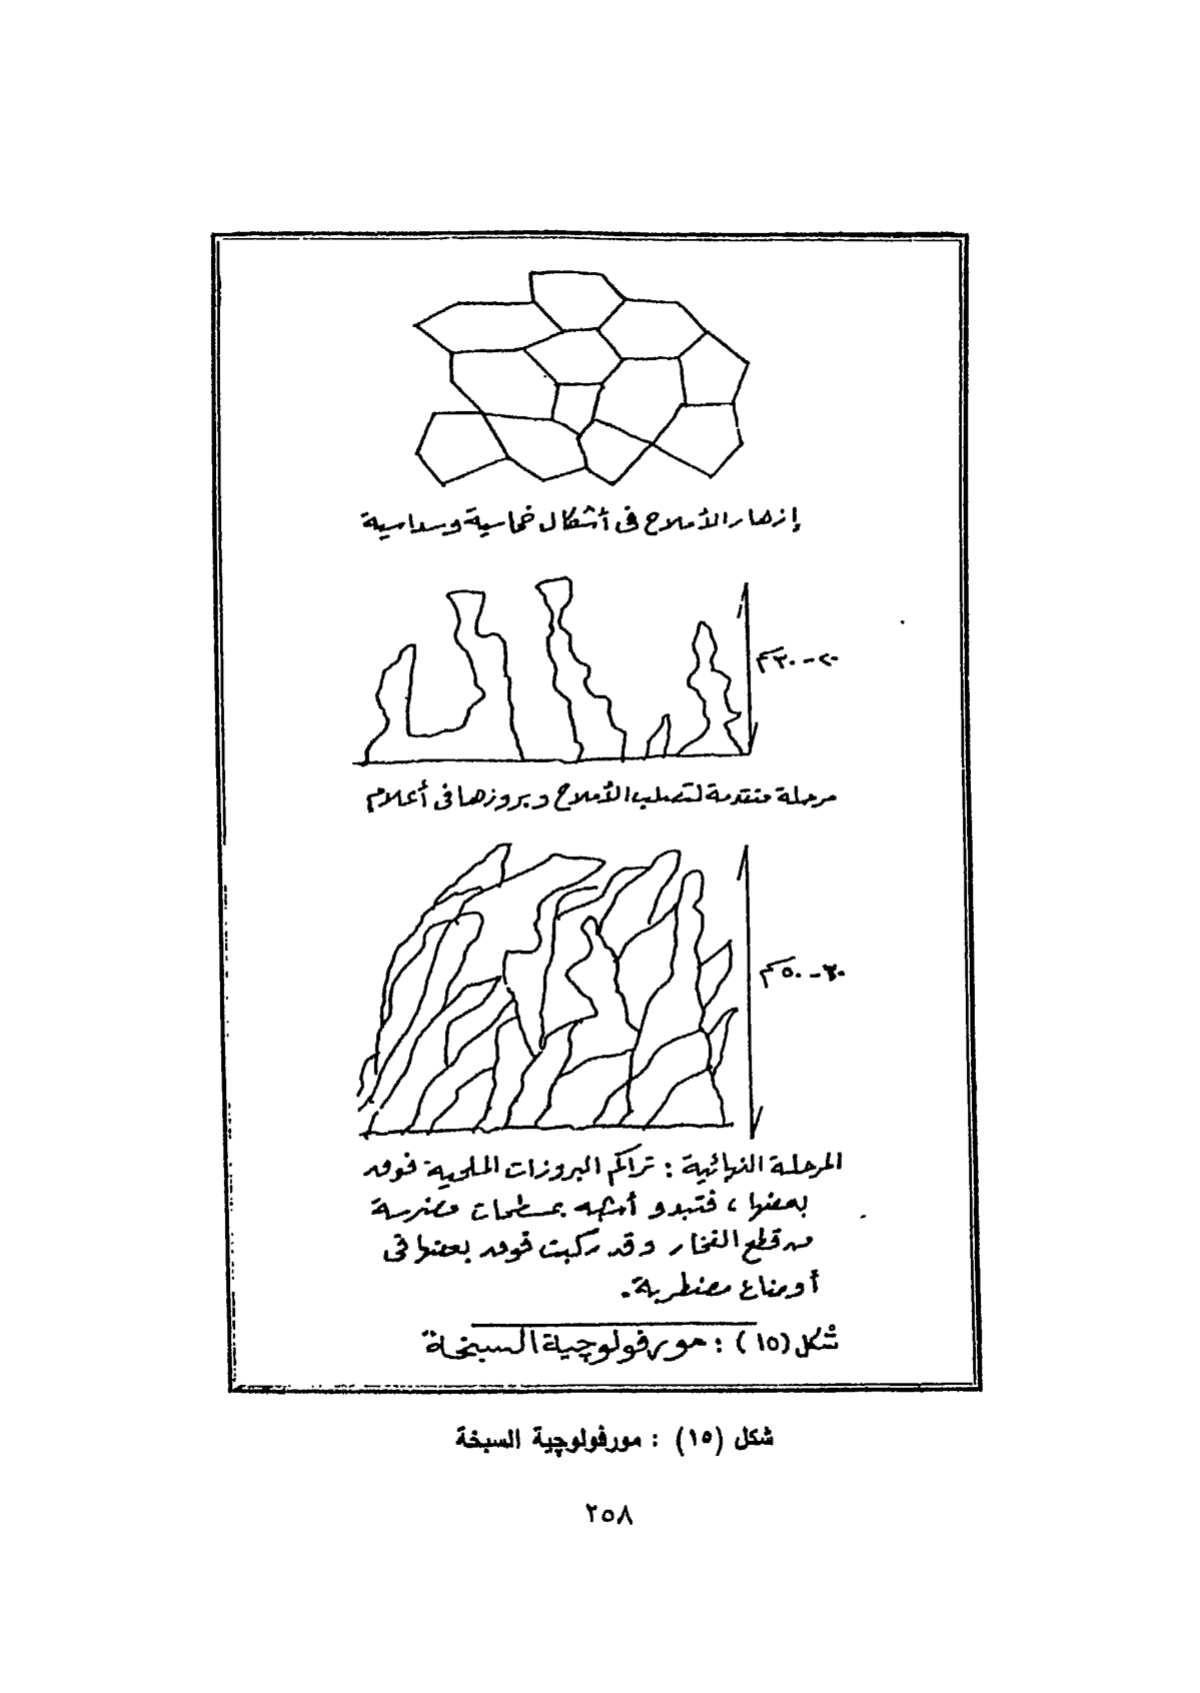 إزهار الأملاح فى أشكال خماسية وسداسية
٢٠-٣٠سم
مرحلة متقدمة لتصلب الأملاح وبروزها فى أعلام
٣٠-٥٠سم
المرحلة النهائية : تراكم البروزات الملحية فوق
بعضها ، فتبدو أشبه بمسطحات مضرسة
من قطع الفخار وقد ركبت فوق بعضها فى
أوضاع مضطربة.
شكل (١٥) : مورفولوچية السبخة
شكل (١٥) : مورفولوچية السبخة
٢٥٨